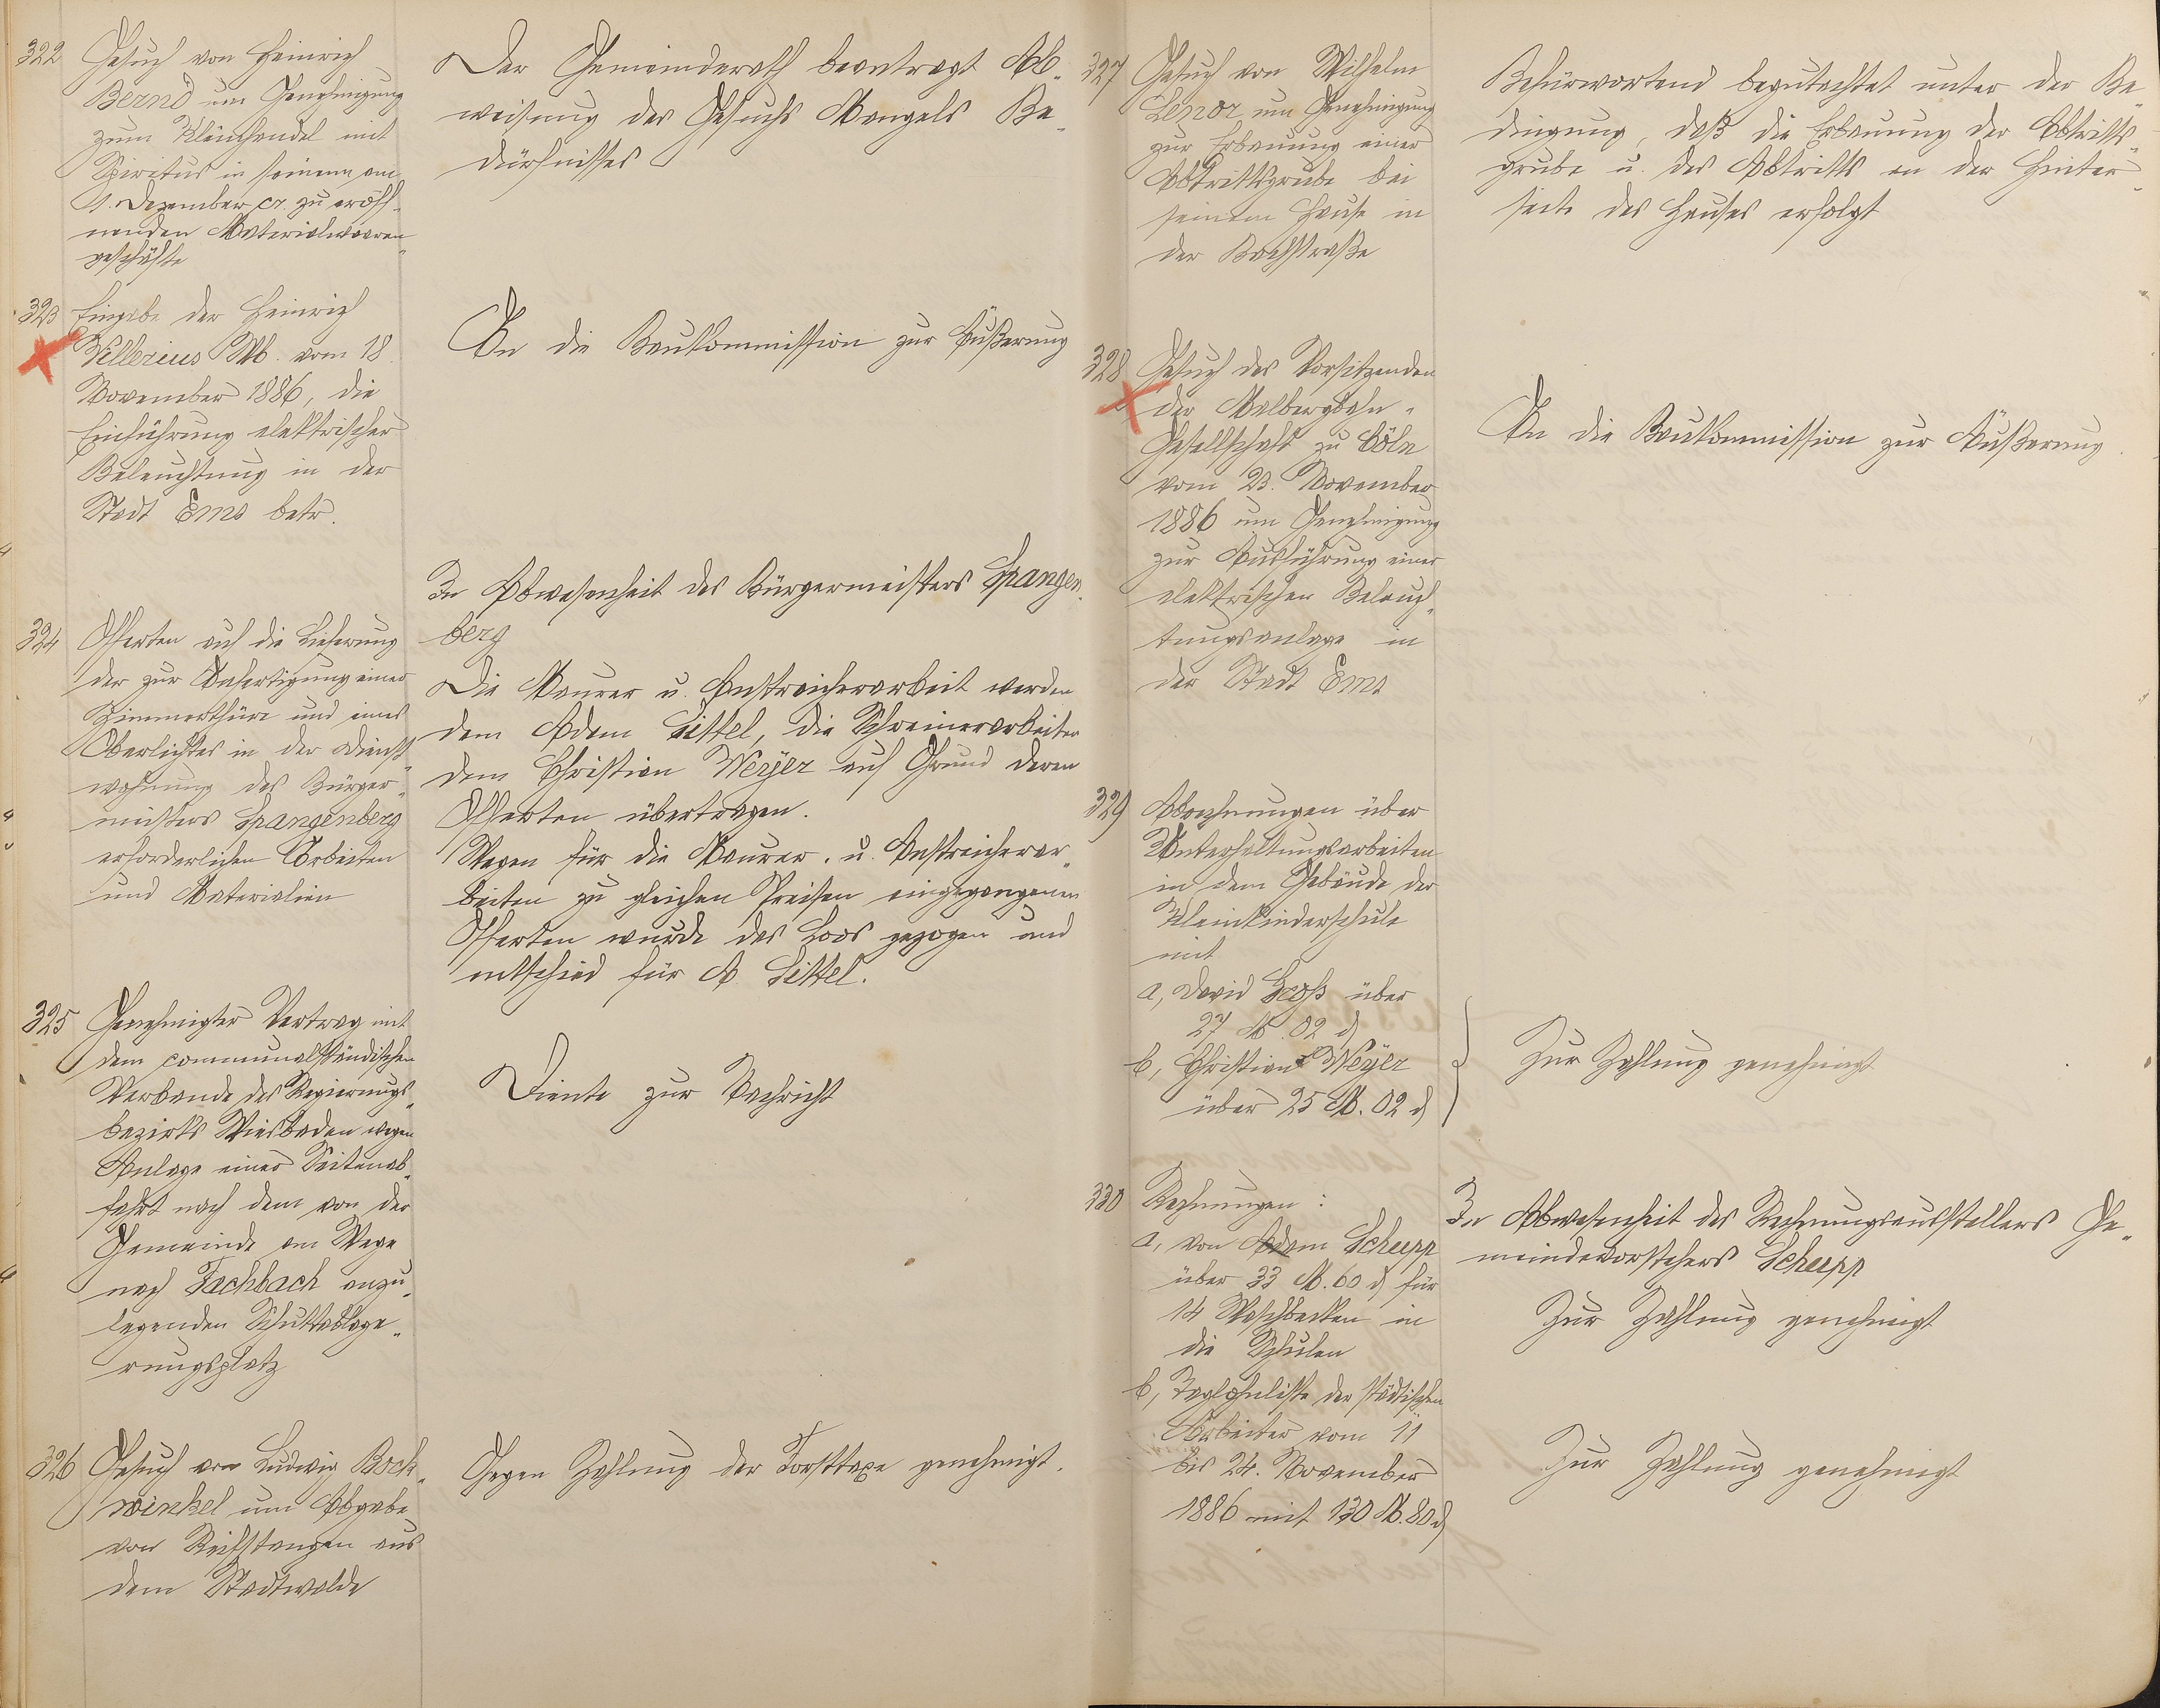 322
Gesuch von Heinrich
Bernd um Genehmigung
zum Kleinhandel mit
Spiritus in seinem am
1. Dezember cr. zu eröff-
nenden Materialwaaren-
geschäfte
Der Gemeinderath beantragt Ab-
weisung des Gesuchs Mangels Be-
dürfnisses
323
Eingabe der Heinrich
Vellerius Wb. vom 18.
November 1886, die
Einführung elektrischer
Beleuchtung in der
Stadt Ems betr.
An die Baukommission zur Äußerung
324
Offerten auf die Lieferung
der zur Anfertigung einer
Zimmerthüre und eines
Oberlichtes in der Dienst-
wohnung des Bürger-
meisters Spangenberg
erforderlichen Arbeiten
und Materialien
In Abwesenheit des Bürgermeisters Spangen-
berg
Die Maurer u. Anstreicherarbeit werden
dem Adam Sittel, die Schreinerarbeiten
dem Christian Weyer auf Grund deren
Offerten übertragen.
Wegen für die Maurer- u. Anstreicherar-
beiten zu gleichen Preisen eingegangenen
Offerten wurde das Loos gezogen und
entschied für A Sittel.
325
Genehmigter Vertrag mit
dem communalständischen
Verbande des Regierungs-
bezirks Wiesbaden wegen
Anlage einer Seitenab-
fahrt nach dem von der
Gemeinde am Wege
nach Fachbach anzu-
legenden Schuttablage-
rungsplatz
Diente zur Nachricht
326
Gesuch von Ludwig Bock-
winkel um Abgabe
von Reifstangen aus
dem Stadtwalde
Gegen Zahlung der Forsttaxe genehmigt.
327
Gesuch von Wilhelm
um Genehmigung
zur Erbauung einer
Abtrittsgrube bei
seinem Hause in
der Bachstraße
Befürwortend begutachtet unter der Be-
dingung, daß die Erbauung der Abtritts-
grube u. des Abtritts an der Hinter-
seite des Hauses erfolgt
328
Gesuch des Vorsitzenden
der Malbergbahn-
Gesellschaft zu Cöln
vom 23. November
1886 um Genehmigung
zur Ausführung einer
elektrischen Beleuch-
tungsanlage in
der Stadt Ems
An die Baukommission zur Äußerung.
329
Abrechnungen über
Unterhaltungsarbeiten
in dem Gebäude der
Kleinkinderschule
mit
a, David über
27 M. 02 d
b, Christian Weyer
über 25 M. 02 d
Zur Zahlung genehmigt
330
Rechnungen:
a, von Adam Schupp
über 33 M. 60 d für
14 Waschbecken in
die Schulen
b, Taglohnliste der städtischen
Arbeiter vom 11
bis 24. November
1886 mit 130 M. 80 d
In Abwesenheit des Rechnungsausstellers Ge-
meindevorstehers Schupp
Zur Zahlung genehmigt
Zur Zahlung genehmigt